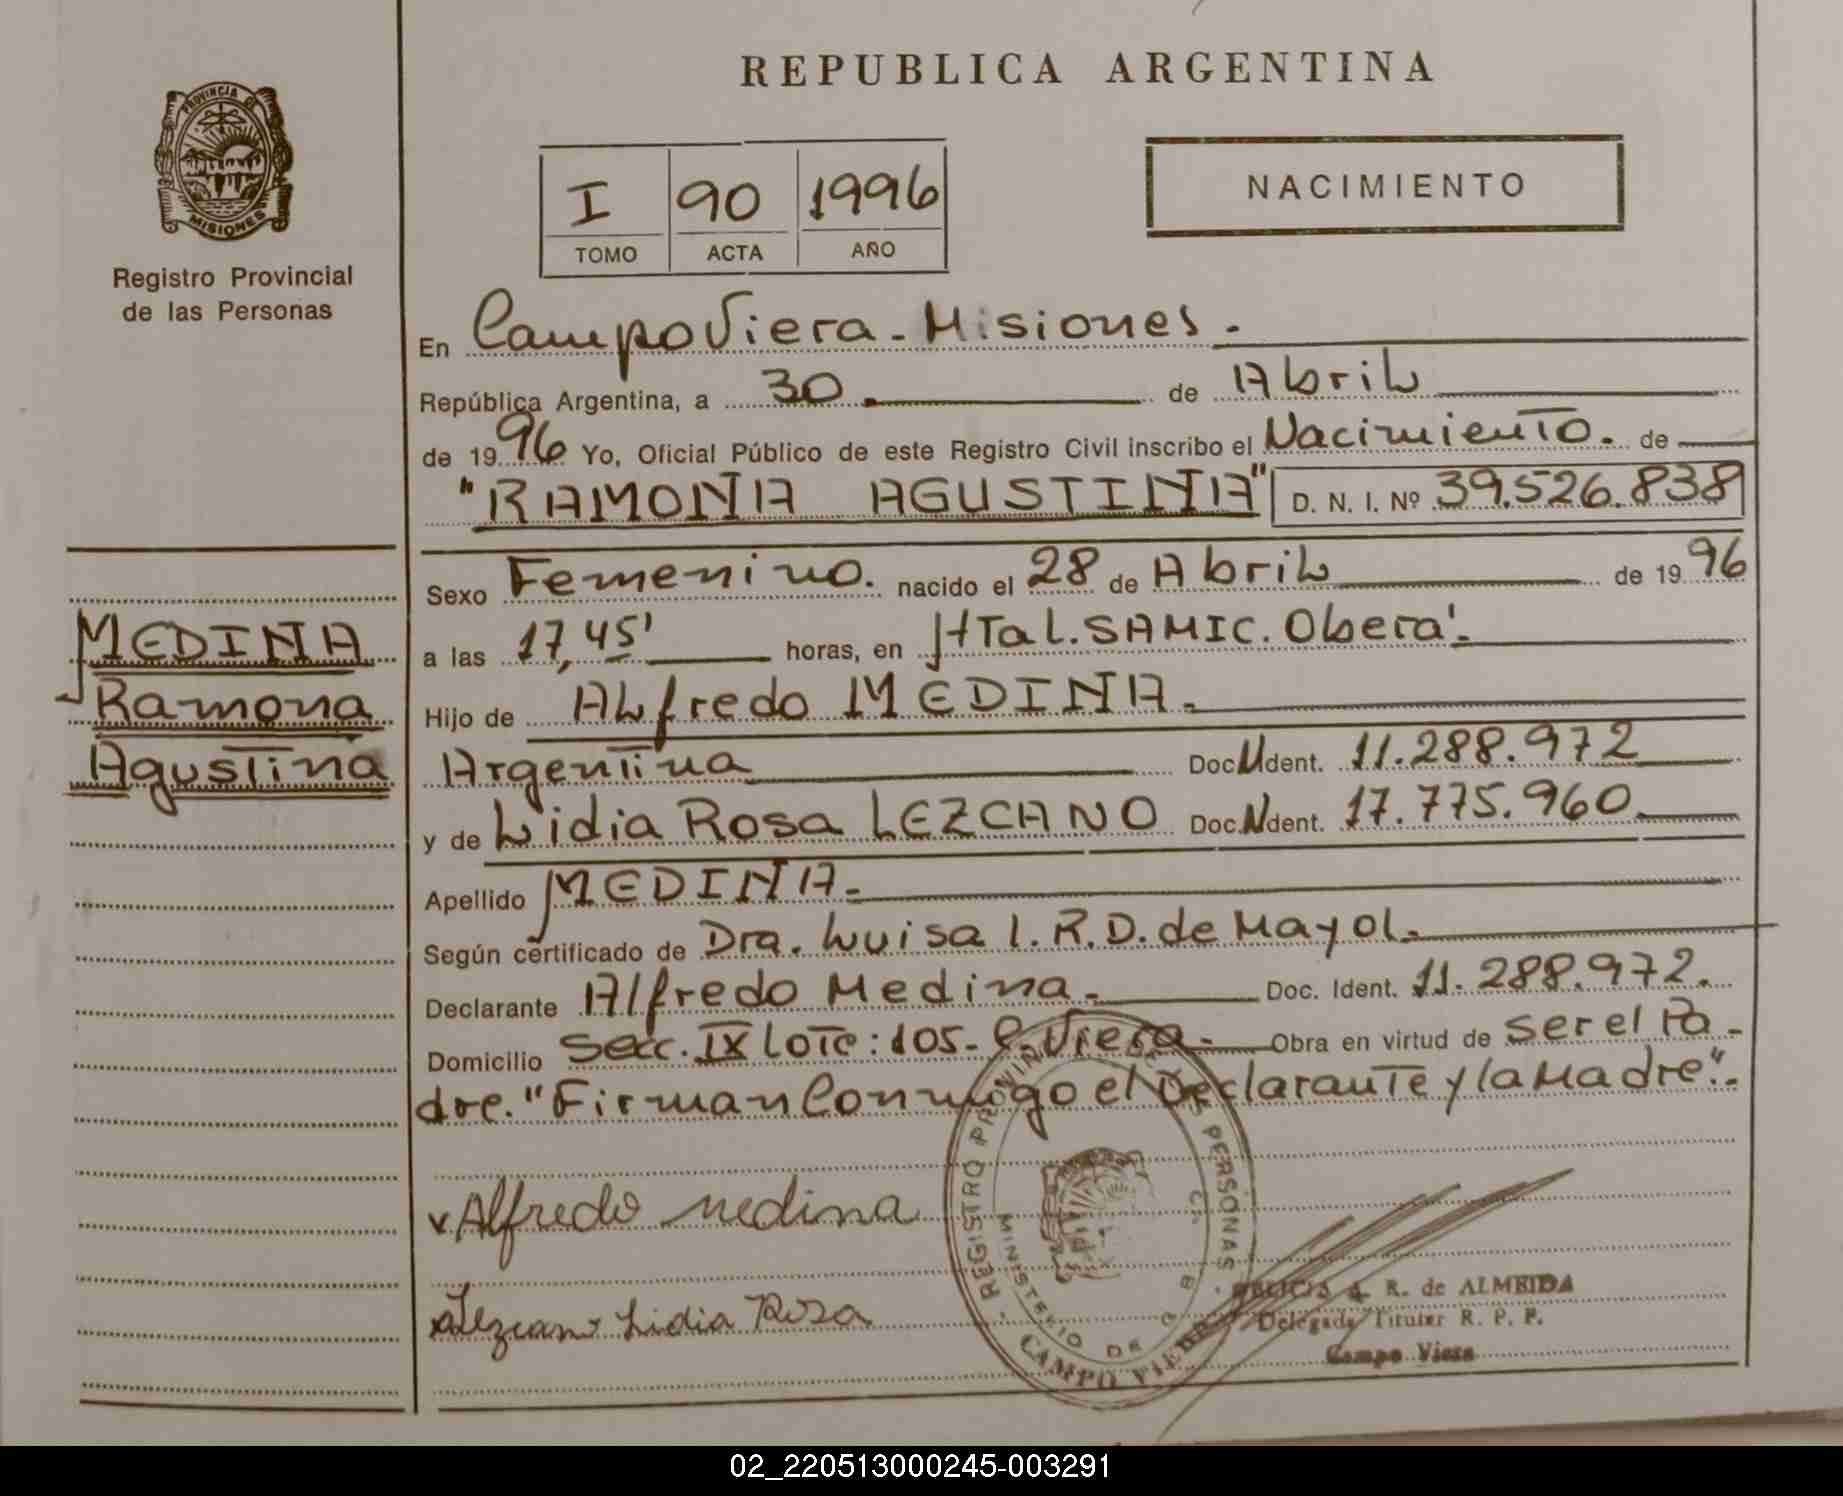 REPUBLICA ARGENTINA
PROVINCIA DE
MISIONES
Registro Provincial
de las Personas
I 90 1996
TOMO ACTA AÑO
NACIMIENTO
En Campo Viera - Misiones.
República Argentina, a 30. de Abril
de 1996 Yo, Oficial Público de este Registro Civil inscribo el Nacimiento. de
"RAMONA AGUSTINA" D. N. I. Nº 39.526.838
Sexo Femenino. nacido el 28 de Abril de 1996
a las 17,45' horas, en HTal. SAMIC. Oberá.
Hijo de Alfredo MEDINA.
Argentina Doc. Ident. 11.288.972
y de Lidia Rosa LEZCANO Doc. Ident. 17.775.960
Apellido MEDINA.
Según certificado de Dra. Luisa I. R. D. de Mayol.
Declarante Alfredo Medina. Doc. Ident. 11.288.972.
Domicilio Secc. IX Lote: 105 - C. Viera. Obra en virtud de ser el Pa-
dre. "Firman Conmigo el Declarante y la Madre".
MEDINA
Ramona
Agustina
Alfredo Medina
Lezcano Lidia Rosa
REGISTRO PROVINCIAL DE LAS PERSONAS
MINISTERIO DE
CAMPO VIERA
A. R. de ALMEIDA
Delegada Titular R. P. P.
Campo Viera
02_220513000245-003291